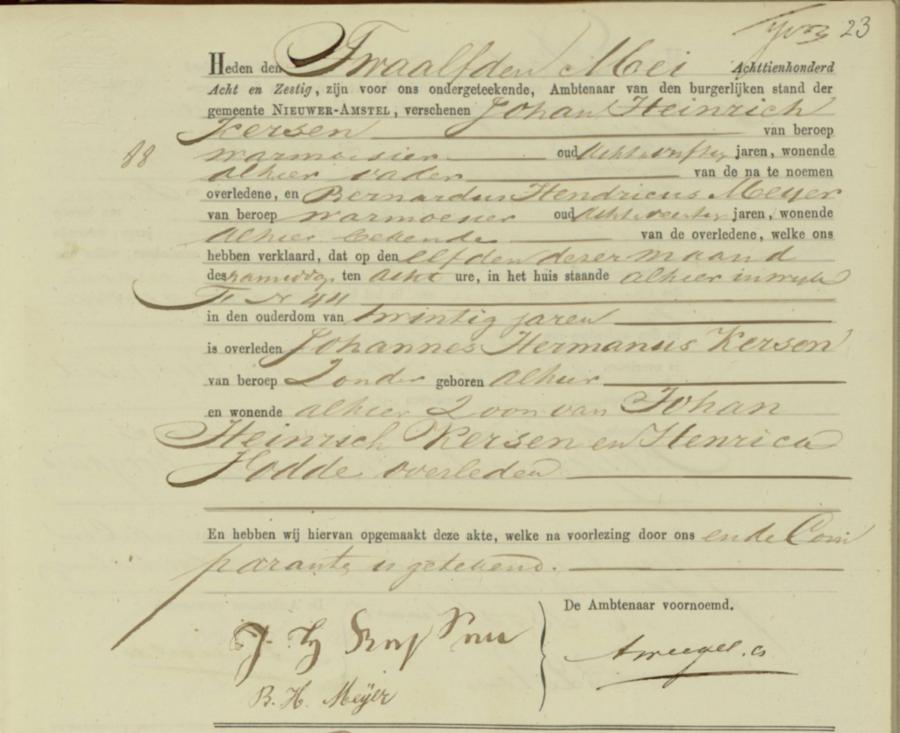 23
Heden den Twaalfden Mei Achttienhonderd
Acht en Zestig, zijn voor ons ondergeteekende, Ambtenaar van den burgerlijken stand der
gemeente NIEUWER-AMSTEL, verschenen Johan Heinrich
Kersen van beroep
88
warmoesier oud acht & vijftig jaren, wonende
alhier vader van de na te noemen
overledene, en Bernardus Hendricus Meyer
van beroep warmoesier oud jaren, wonende
alhier bekende van de overledene, welke ons
hebben verklaard, dat op den elfden dezer maand
des namiddag ten acht ure, in het huis staande alhier in wijk
F. N 44
in den ouderdom van twintig jaren
is overleden Johannes Hermanus Kersen
van beroep Zonder geboren alhier
en wonende alhier Zoon van Johan
Heinrich Kersen en Henrica
Hodde overleden
En hebben wij hiervan opgemaakt deze akte, welke na voorlezing door ons en de Com
paranten is getekend.
De Ambtenaar voornoemd.
J. H.
B. H. Meÿer